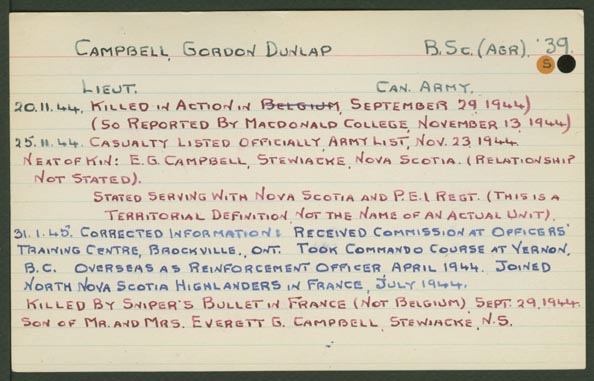 CAMPBELL, GORDON DUNLAP B.Sc. (AGR). '39.
S
LIEUT. CAN. ARMY.
20.11.44. KILLED IN ACTION IN BELGIUM, SEPTEMBER 29, 1944)
(SO REPORTED BY MACDONALD COLLEGE, NOVEMBER 13, 1944)
25.11.44. CASUALTY LISTED OFFICIALLY, ARMY LIST, NOV. 23, 1944.
NEXT OF KIN: E.G. CAMPBELL, STEWIACKE, NOVA SCOTIA. (RELATIONSHIP
NOT STATED).
STATED SERVING WITH NOVA SCOTIA AND P.E.I REGT. (THIS IS A
TERRITORIAL DEFINITION, NOT THE NAME OF AN ACTUAL UNIT).
31.1.45. CORRECTED INFORMATION: RECEIVED COMMISSION AT OFFICERS'
TRAINING CENTRE, BROCKVILLE, ONT. TOOK COMMANDO COURSE AT VERNON,
B.C. OVERSEAS AS REINFORCEMENT OFFICER APRIL 1944. JOINED
NORTH NOVA SCOTIA HIGHLANDERS IN FRANCE, JULY 1944.
KILLED BY SNIPER'S BULLET IN FRANCE (NOT BELGIUM), SEPT. 29, 1944.
SON OF MR. AND MRS. EVERETT G. CAMPBELL, STEWIACKE, N.S.